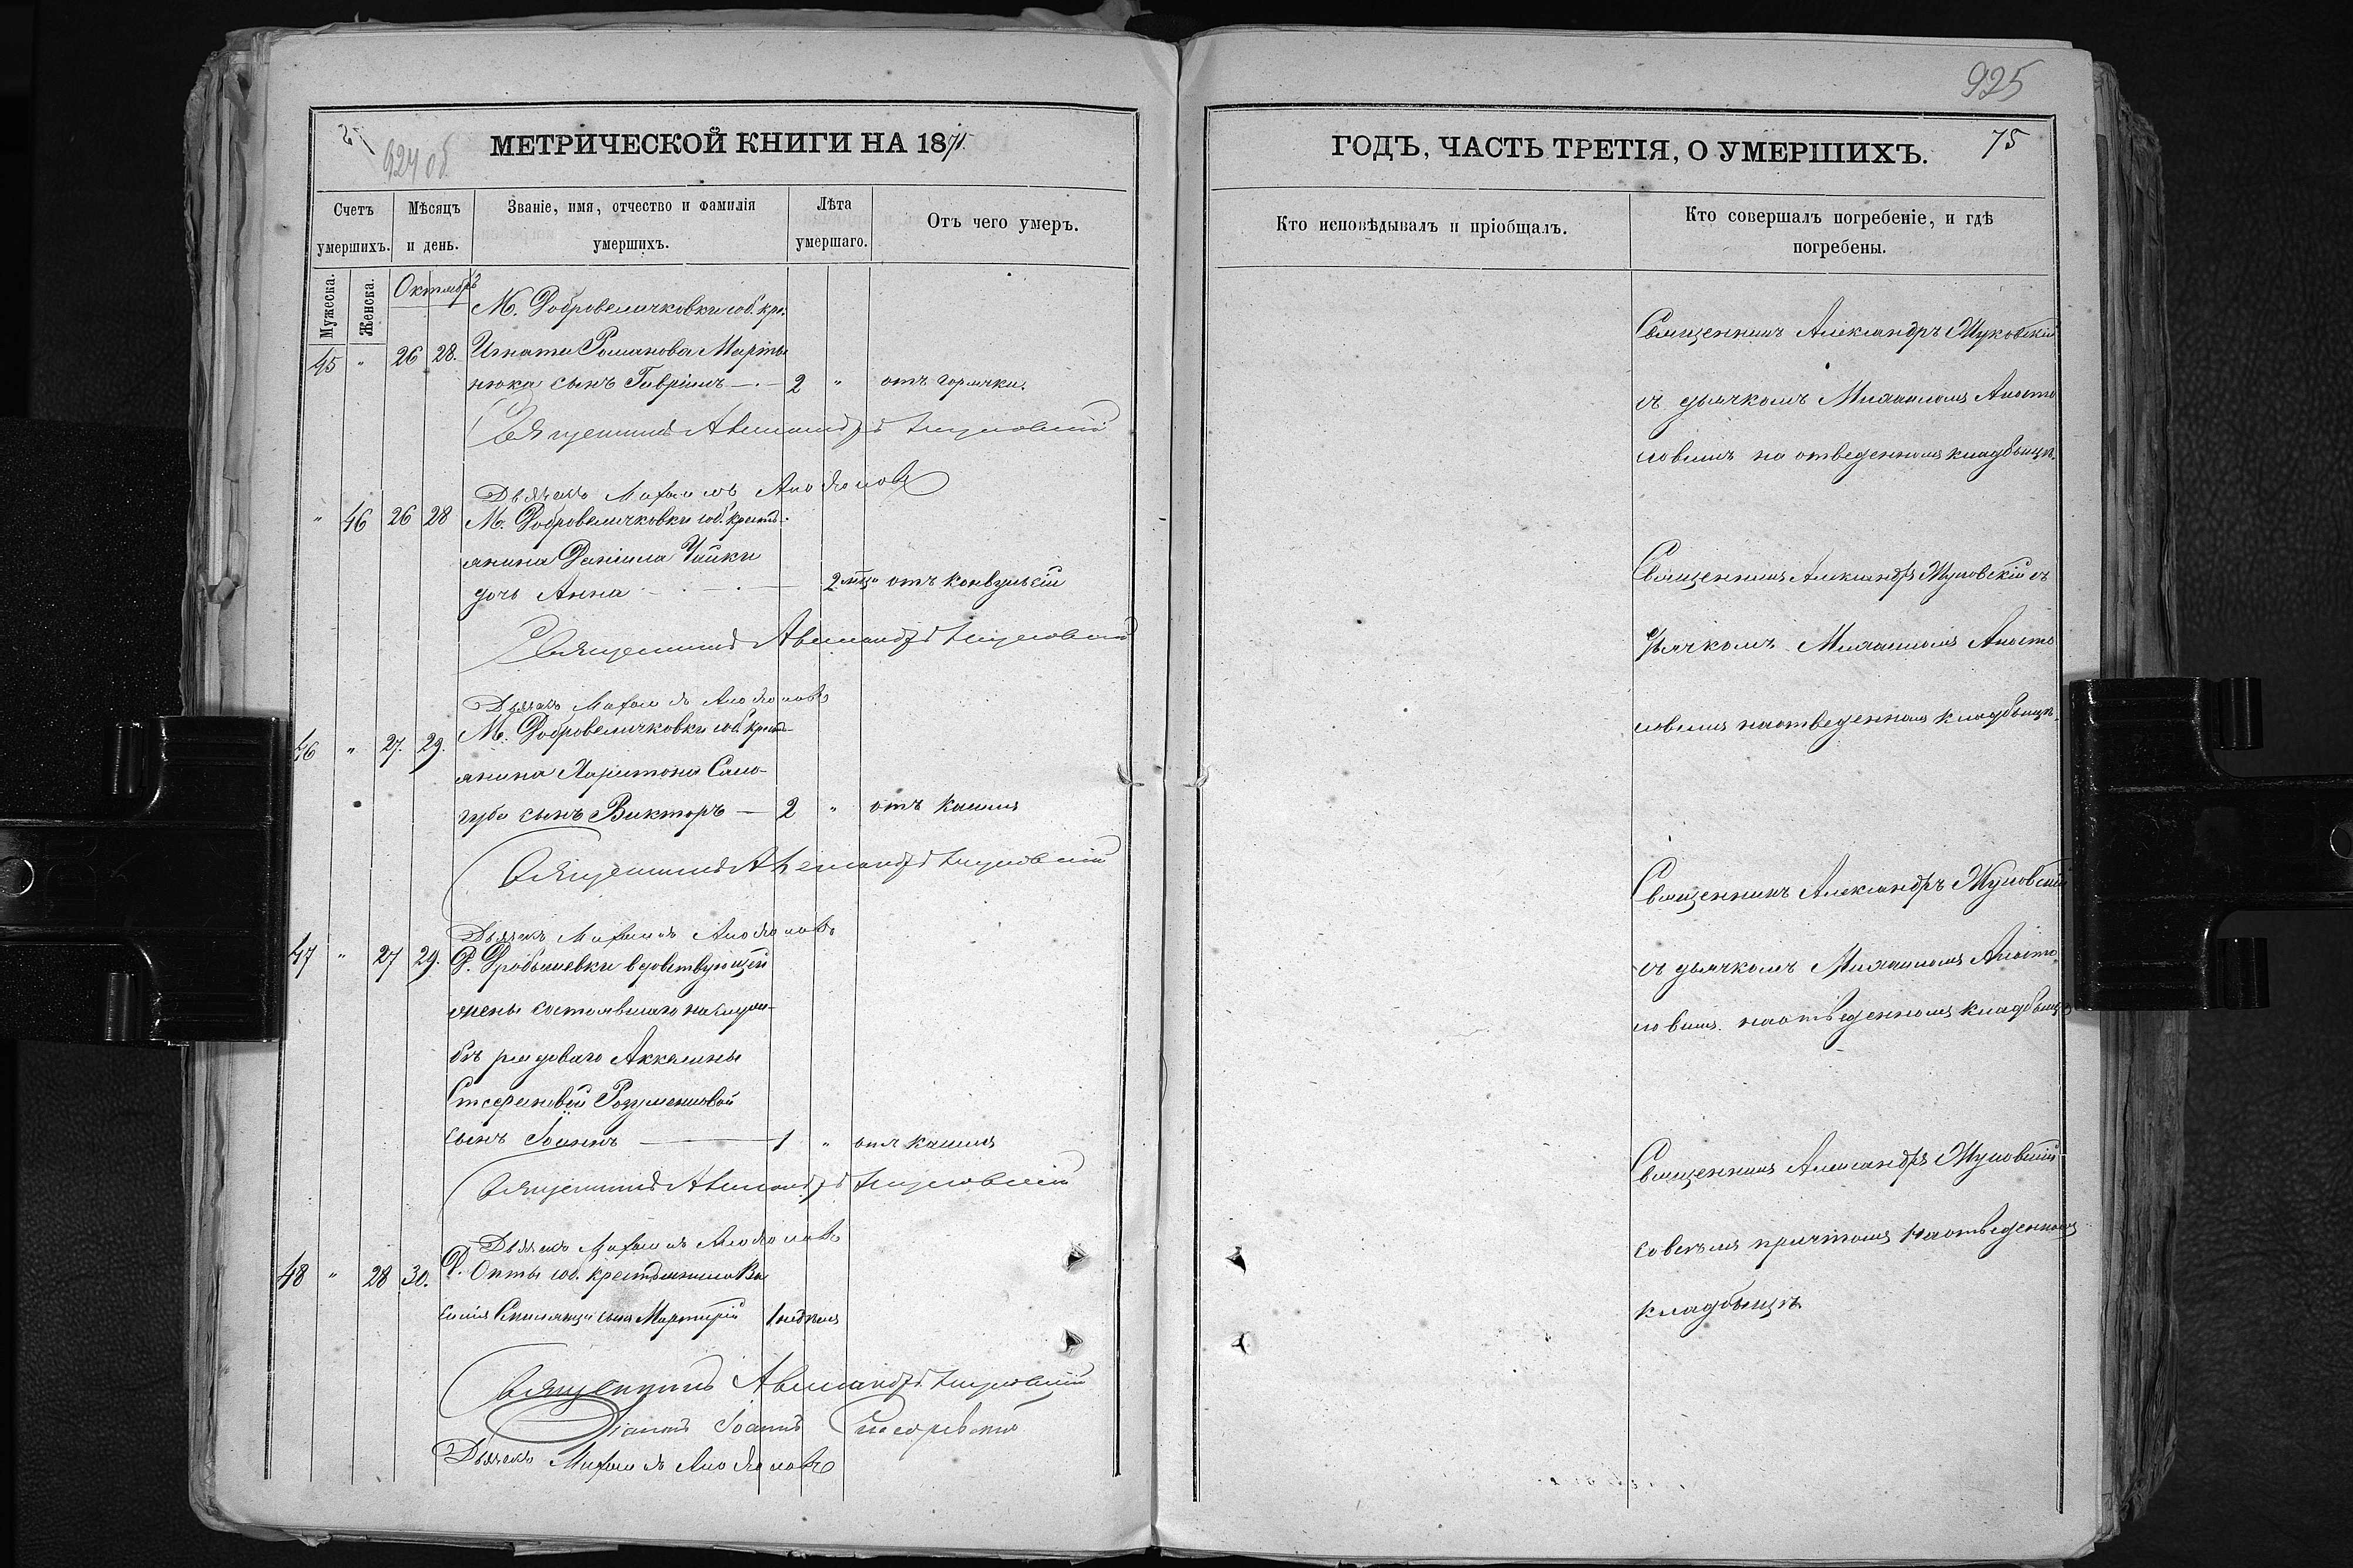 925
924 об.
МЕТРИЧЕСКОЙ КНИГИ НА 1871
Счетъ умершихъ.
Мѣсяцъ и день.
Званіе, имя, отчество и фамилія умершихъ.
Лѣта умершаго.
Отъ чего умеръ.
Мужеска.
Женска.
Октябрь
М. Добровеличковки соб. кре.
45 " 26 28. Игнатія Романова Марты
нюка сынъ Гавріилъ — 2 " отъ горячки.
Священникъ Александръ Жуковскій
Дьячекъ Михаилъ Апостоловъ
" 46 26 28 М. Добровеличковки соб. кресть-
янина Даніила Чайки
дочь Анна — 2 мц. отъ конвульсіи
Священникъ Александръ Жуковскій
Дьячекъ Михаилъ Апостоловъ
46 " 27. 29. М. Добровеличковки соб. кресть-
янина Харитона Сало-
губа сынъ Викторъ — 2 " отъ кашля
Священникъ Александръ Жуковскій
Дьячекъ Михаилъ Апостоловъ
47 " 27 29. вдовствующей
жены состоявшаго на служ-
бѣ рядоваго Аккилины
сынъ Іоаннъ — 1 " отъ кашля
Священникъ Александръ Жуковскій
Дьячекъ Михаилъ Апостоловъ
48 " 28 30. Д. Опты соб. крестьянина Ва
силія сынъ Мартирій 1 недѣля
Священникъ Александръ Жуковскій
Діаконъ Іоаннъ
Дьячекъ Михаилъ Апостоловъ
ГОДЪ, ЧАСТЬ ТРЕТІЯ, О УМЕРШИХЪ.
75
Кто исповѣдывалъ и пріобщалъ.
Кто совершалъ погребеніе, и гдѣ погребены.
Священникъ Александръ Жуковскій
съ дьячкомъ Михаиломъ Апосто
ловымъ на отведенномъ кладбищѣ.
Священникъ Александръ Жуковскій съ
дьячкомъ Михаиломъ Апосто
ловымъ на отведенномъ кладбищѣ.
Священникъ Александръ Жуковскій
съ дьячкомъ Михаиломъ Апосто
ловымъ на отведенномъ кладбищѣ
Священникъ Александръ Жуковскій
со всѣмъ причтомъ на отведенномъ
кладбищѣ